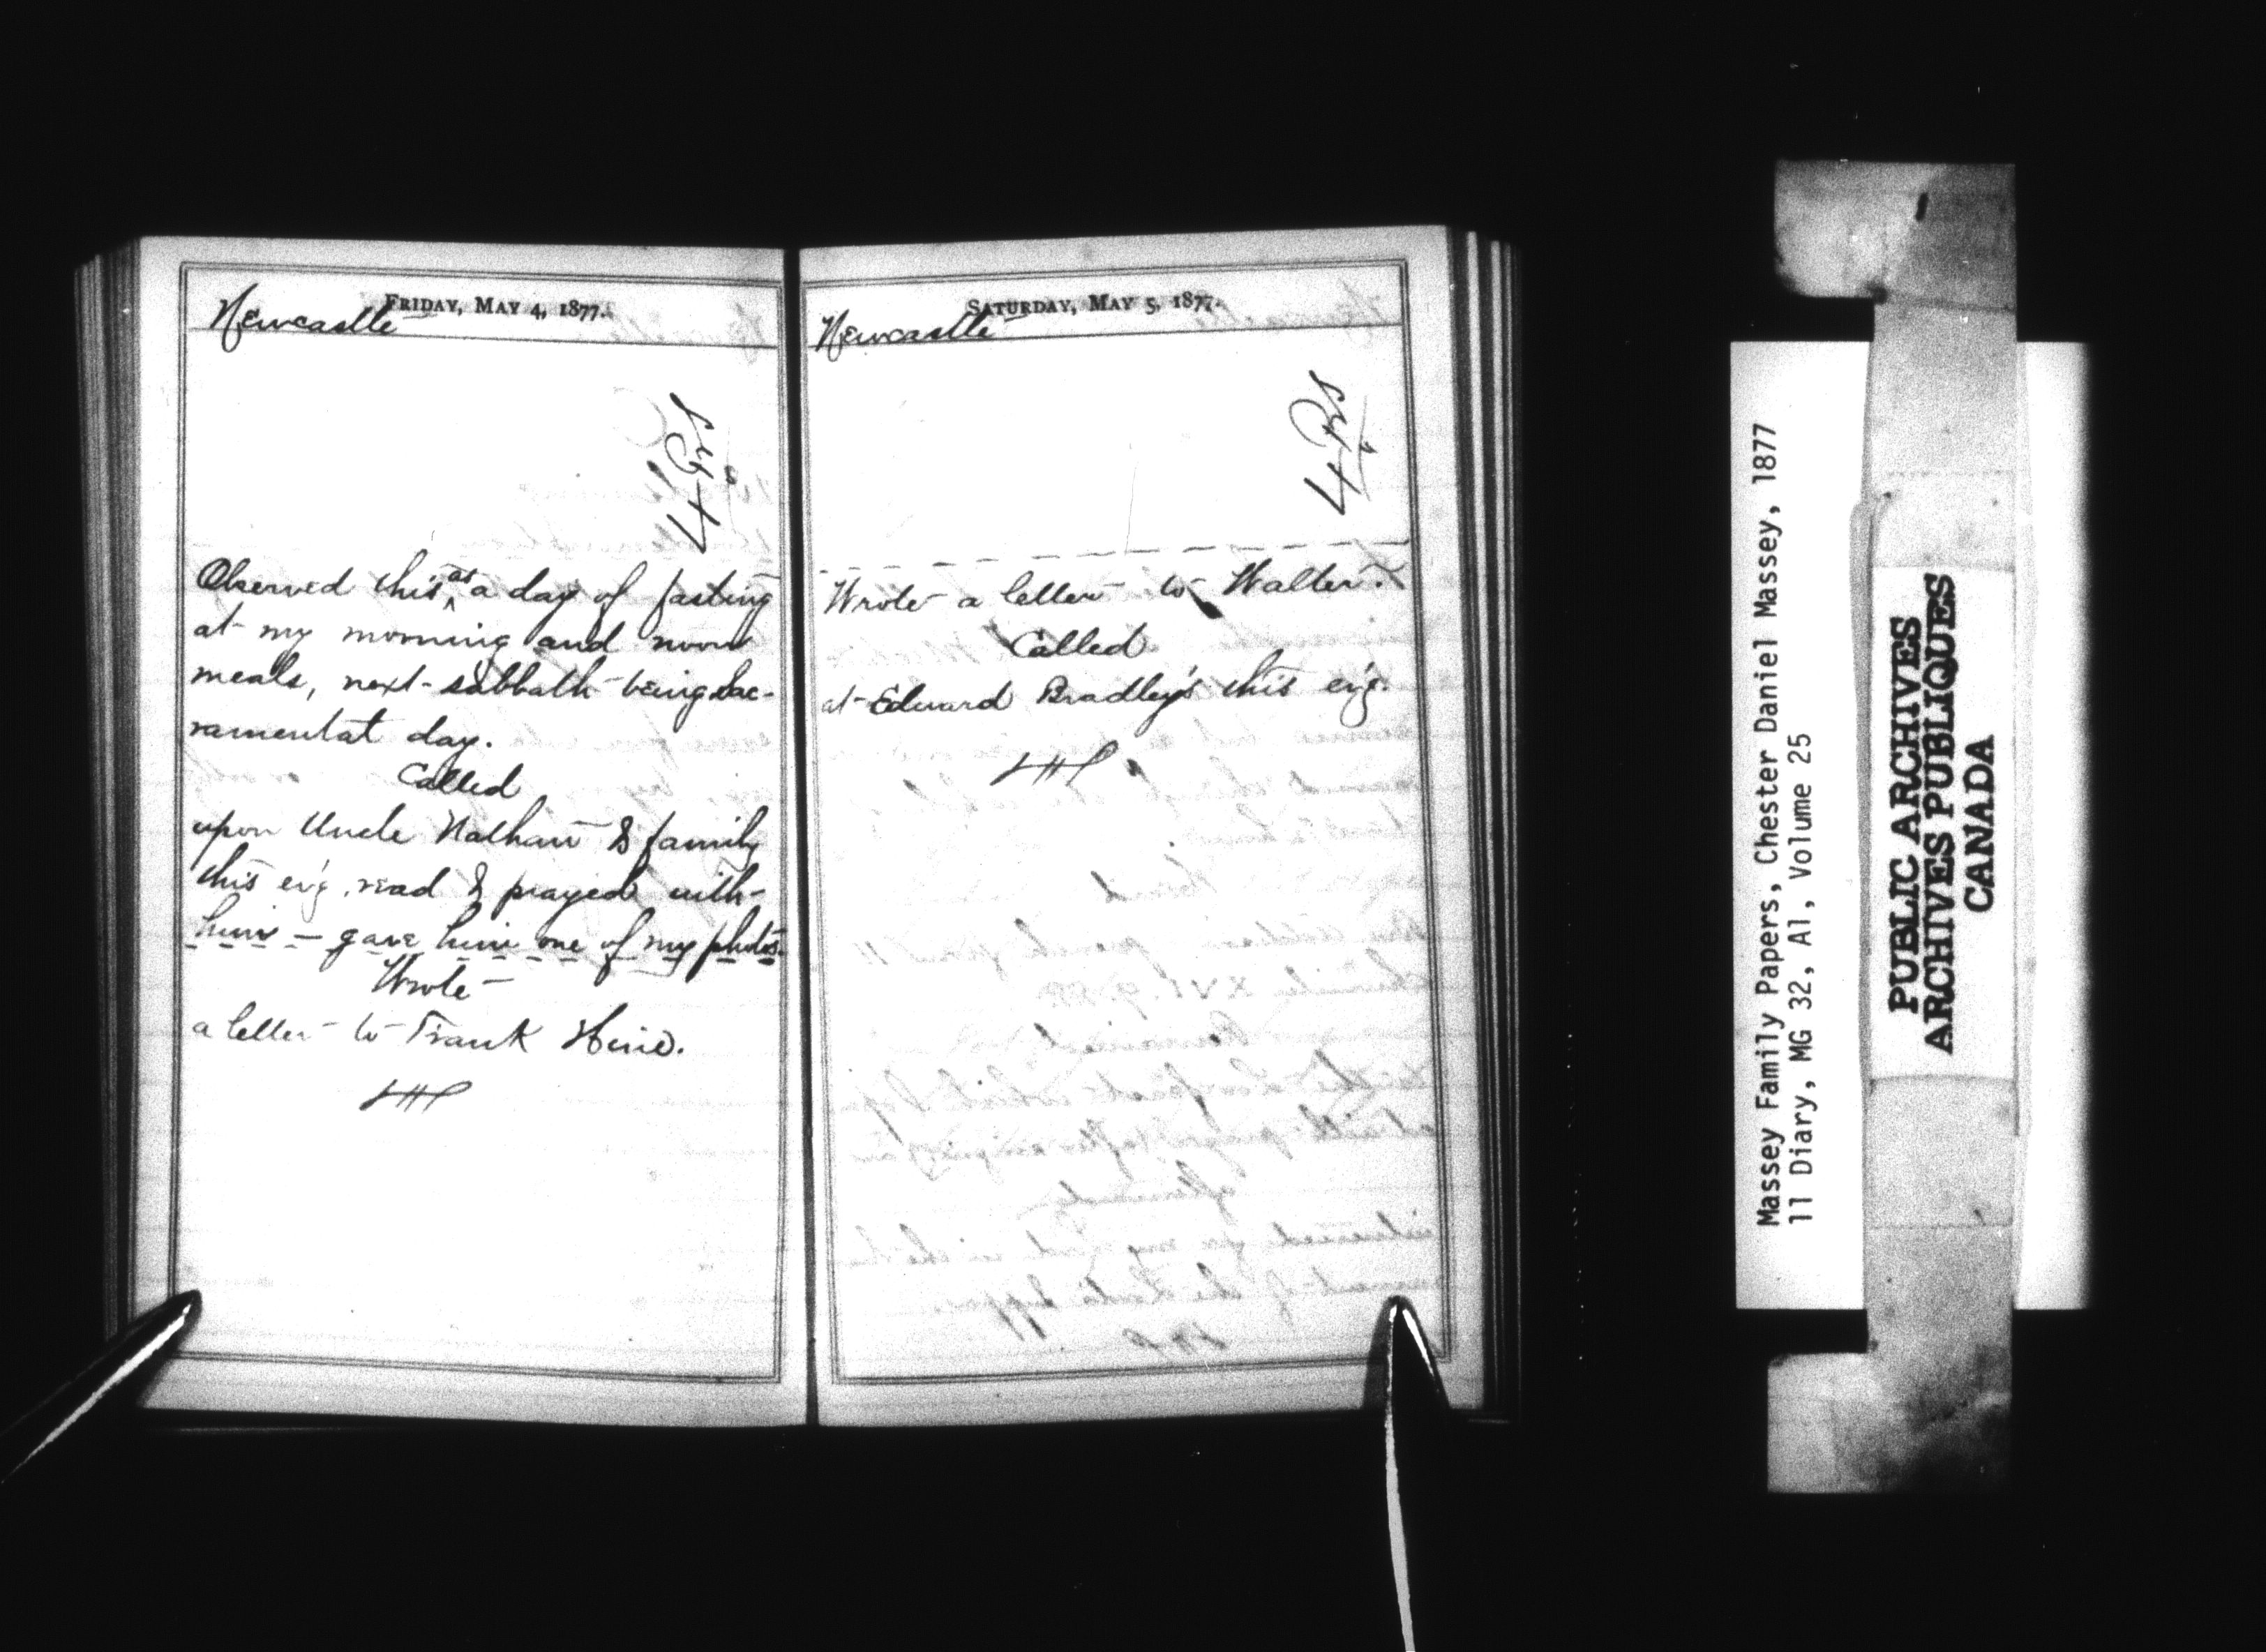 FRIDAY, MAY 4, 1877.
Newcastle
4 Prs
Observed this as a day of fasting
at my morning and noon
meals, next sabbath being Sac-
ramental day.
Called
upon Uncle Nathan & family
this ev'g. read & prayed with
him — gave him one of my photos.
Wrote
a letter to Frank
SATURDAY, MAY 5, 1877.
Newcastle
4 Prs
Wrote a letter to Walter.
Called
at Edward Bradley's this ev'g.
Massey Family Papers, Chester Daniel Massey, 1877
11 Diary, MG 32, A1, Volume 25
PUBLIC ARCHIVES
ARCHIVES PUBLIQUES
CANADA